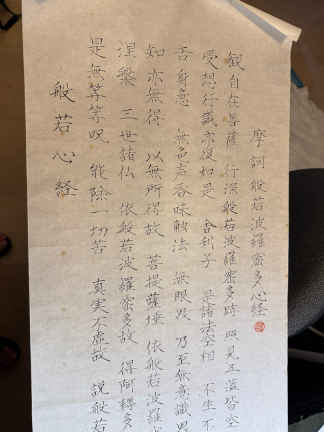 摩訶般若波羅蜜多心経
観自在菩薩 行深般若波羅蜜多時 照見五蘊皆空
受想行識亦復如是 舎利子 是諸法空相 不生不
舌身意 無色声香味触法 無眼界 乃至無意識界
知亦無得 以無所得故 菩提薩埵 依般若波羅
涅槃 三世諸仏 依般若波羅蜜多故 得阿耨多
是無等等呪 能除一切苦 真実不虚故 説般若
般若心経